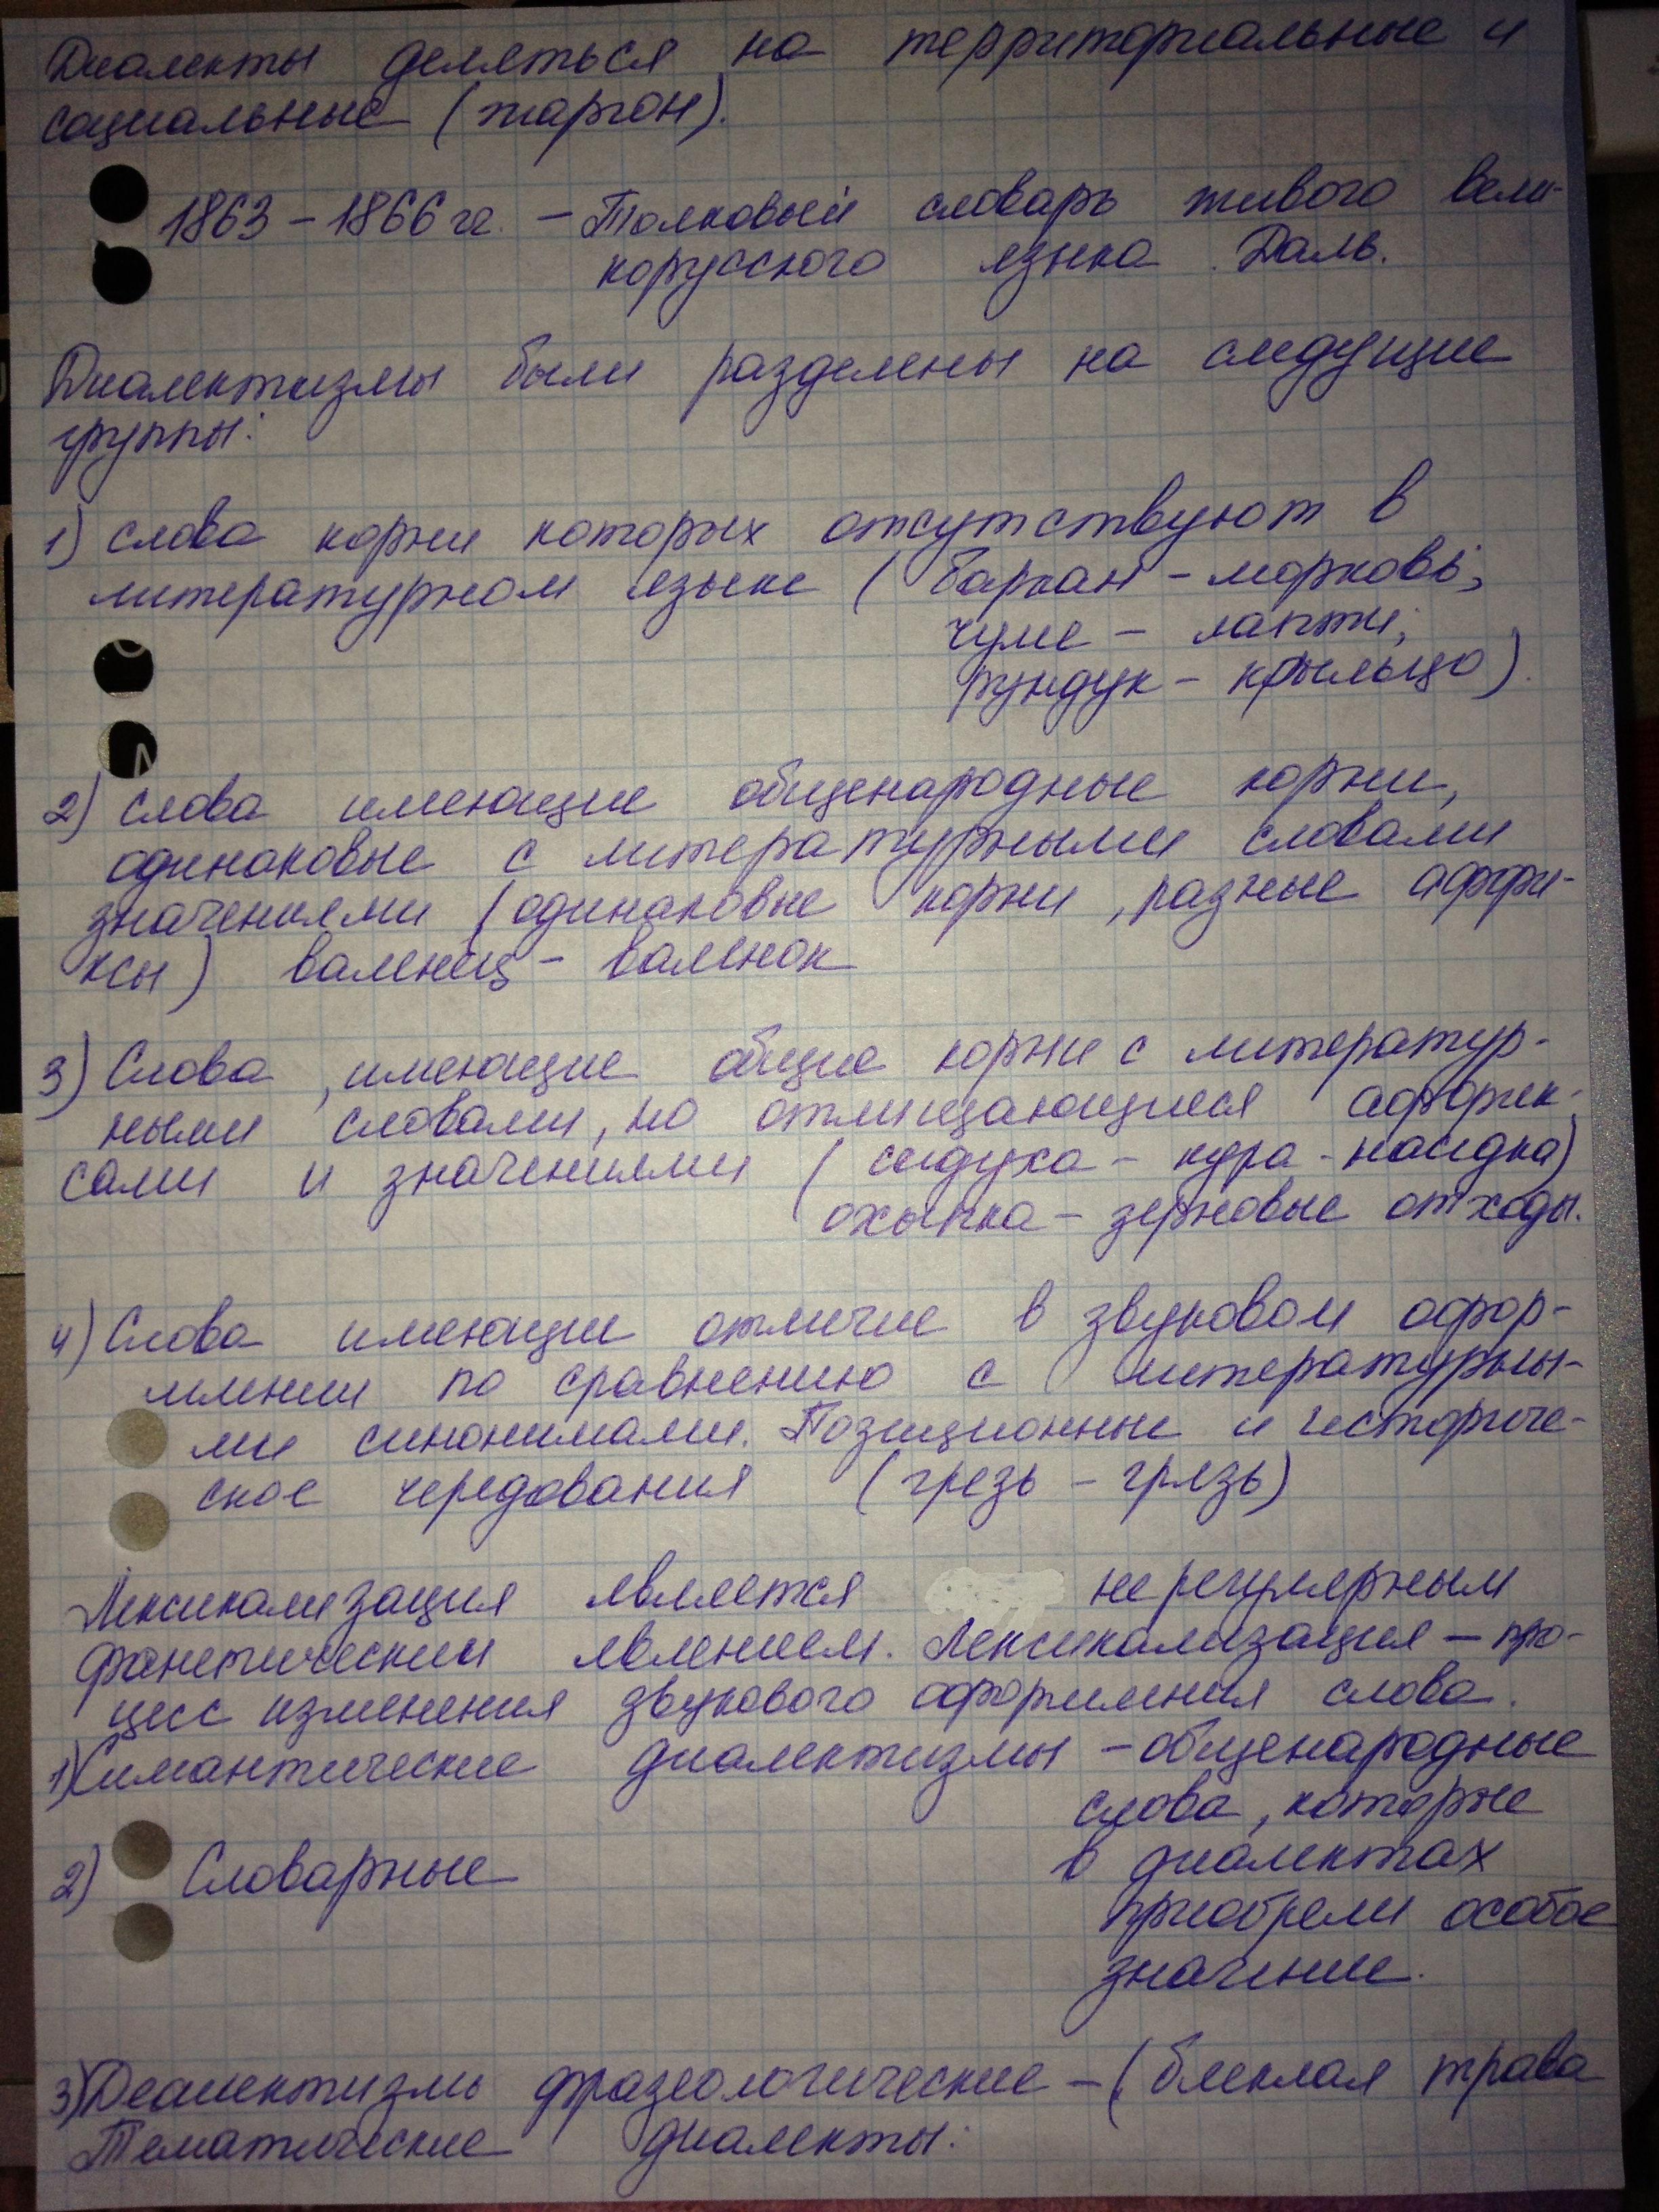 Диалекты деляться на территориальные и
социальные (жаргон).
1863 – 1866 гг. – Толковый словарь живого вели-
корусского языка Даль.
Диалектизмы были разделены на следущие
группы:
1) слова корни которых отсутствуют в
литературном языке (баркан – морковь;
чуме – лапти;
рундук – крыльцо).
2) слова имеющие общенародные корни,
одинаковые с литературными словами
значениями (одинаковые корни, разные аффи-
ксы) валенец – валенок
3) Слова, имеющие общие корни с литератур-
ными словами, но отличающиеся аффик-
сами и значениями (седуха – кура - наседка)
охыпка – зерновые отходы.
4) Слова имеющие отличие в звуковом офор-
млении по сравнению с литературны-
ми синонимами. Позиционные и историче-
ское чередования (грезь – грязь)
Лексикализация является нерегулярным
фанетическим явлением. Лексикализация – про-
цесс изменения звукового оформления слова.
1) Симантические диалектизмы – общенародные
слова, которые
2) Словарные в диалектах
приобрели особое
значение.
3) Деалектизмы фразеологические – (блеклая трава
Тематические диалекты: